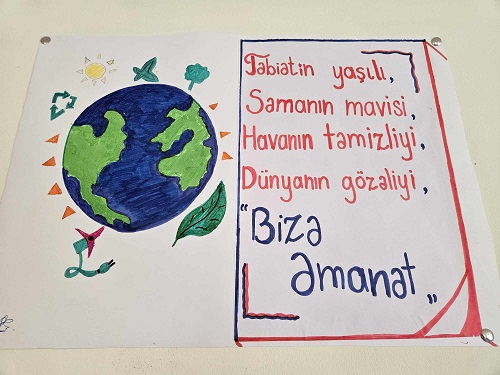 Təbiətin yaşılı,
Səmanın mavisi,
Havanın təmizliyi,
Dünyanın gözəliyi,
"Bizə
Əmanət"